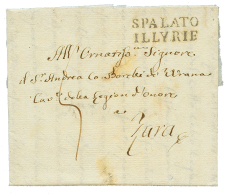 SPALATO
ILLYRIE
All' Ornatiss. Signore
di Sr. Andrea Co: Borelli di Wrana
Cav. della Legion d'Onore
a
Zara